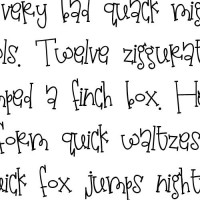 very bad quack mi
ls. Twelve ziggurat
ped a finch box. H
form quick waltzes
ick fox jumps night